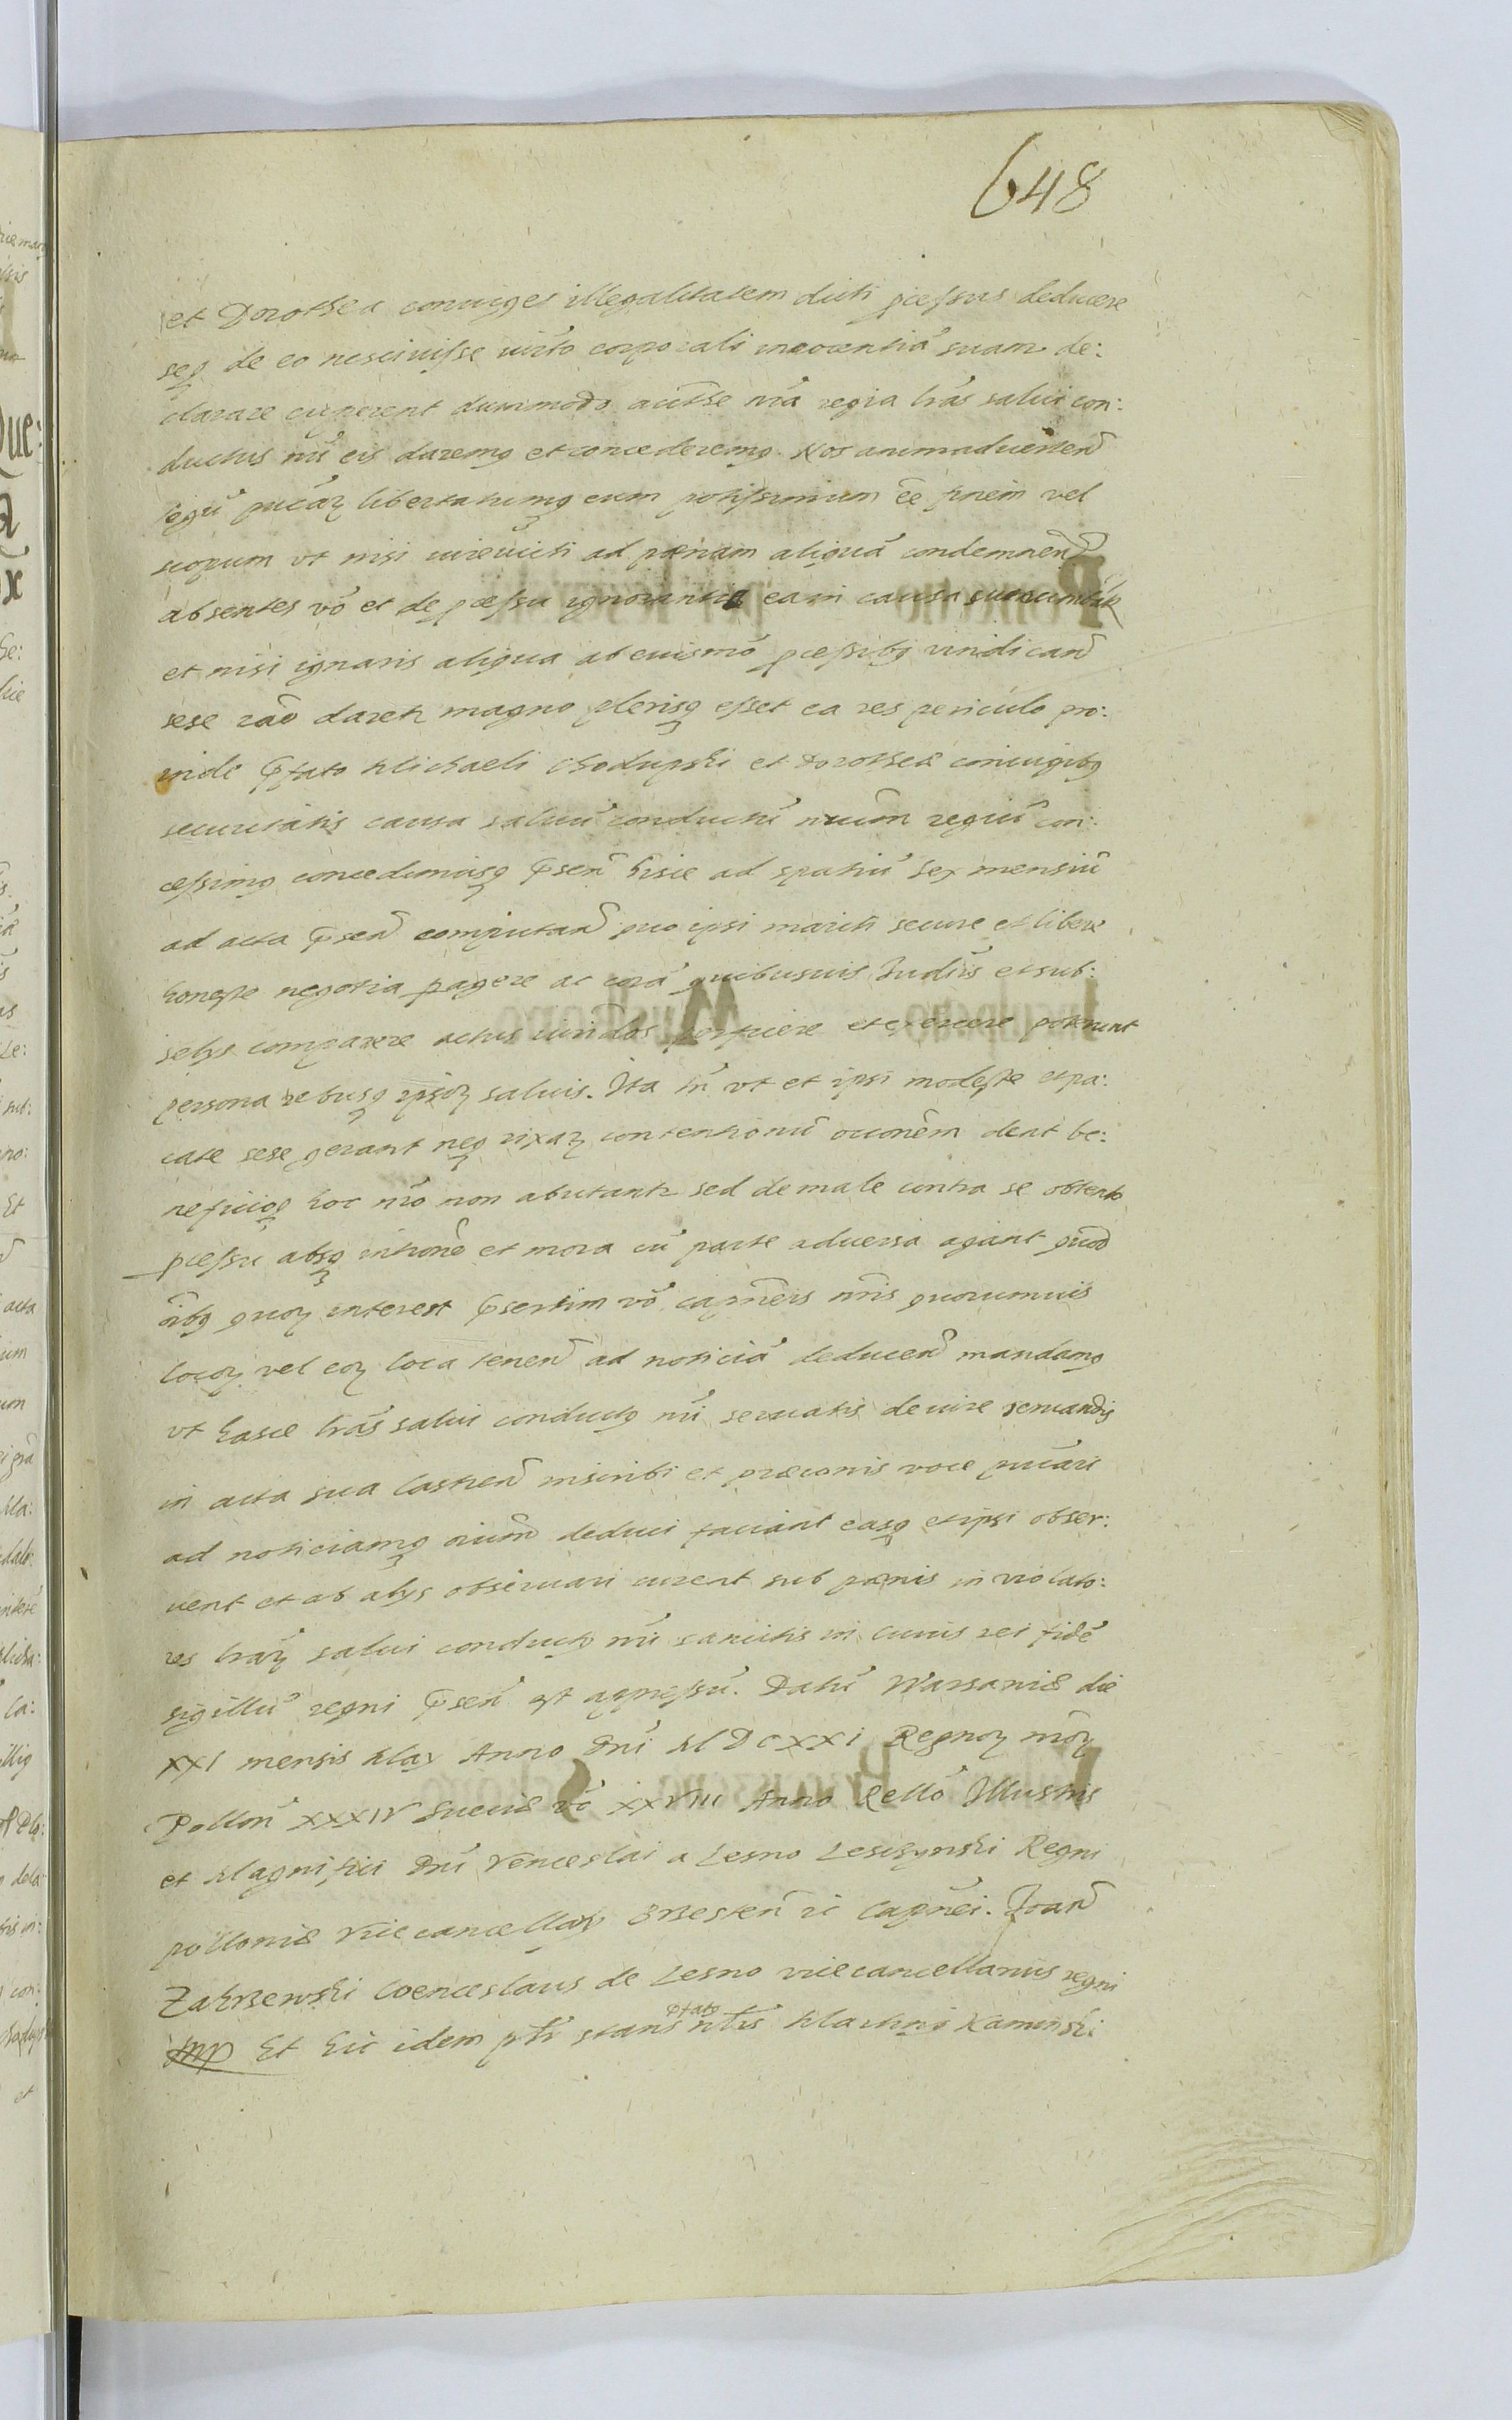 648
et Dorothea coniuges illegalitatem dicti pcessus deducere
seq de eo nescivisse iurto corporali innocentiã suam de:
clarare cuperent dummodo aucthe nrã regia lrãs salvi con:
ductus nri eis daremq et concederemq. Nos animadverten
legũ publicar libertatumq eum potissimum ẽe finem vel
scopum vt nisi iurevicti ad pœnam aliquã condemnen
absentes vō et de pcessu ignorantes ea in causa
et nisi ignaris aliqua ab euismō pcessibq vindican
sese rãō daretr magno plerisq esset ea res periculo pro:
inde pfato Michaeli Chodupski et Dorotheæ coniugibq
securitatis causa salvũ conductũ nrum regiũ con:
cessimq concedimusq psen hisce ad spatiũ sex mensiũ
ad acta psen computan quo ipsi mariti secure et libere
honeste negotia pagere ac corã quibusuis Iudiis et sub:
selijs comparere actus iuridos perficere et exercere poterunt
persona rebusq ipsor salvis. Ita tñ vt et ipsi modeste et pa:
cate sese gerant neq rixar contentionũ occonem dent be:
neficioq hoc nro non abutantr sed de male contra se obtento
pcessu absq intione et mora cũ parte adversa agant quod
oibq quor interest psertim vō capneis nris quorumuis
locor vel eor loca tenen ad noticiã deducen mandamq
vt hasce lrãs salvi conductq nri servatis de iure servandis
in acta sua Castren inscribi et præconis voce publicari
ad noticiamq oium deduci faciant easq et ipsi obser:
vent et ab alijs observari curent sub pœnis in violato:
res lrar salvi conductq nri sancitis in cuius rei fidẽ
sigillũ regni psen est appressũ. Datũ Warsaviæ die
XXI mensis May Anno Dni MDCXXI Regnor nror
Pollon XXXIV Sueciæ vō XXVIII Anno Rello Illustris
et Magnifici Dni Venceslai a Lesno Lesczynski Regni
polloniæ Vicecancellarij Brzesten zc Capnei. Joan
Zakrzewski Wenceslaus de Lesno vicecancellarius regni
mp Et hic idem pbr stans pfato nblis Martinq Kaminski